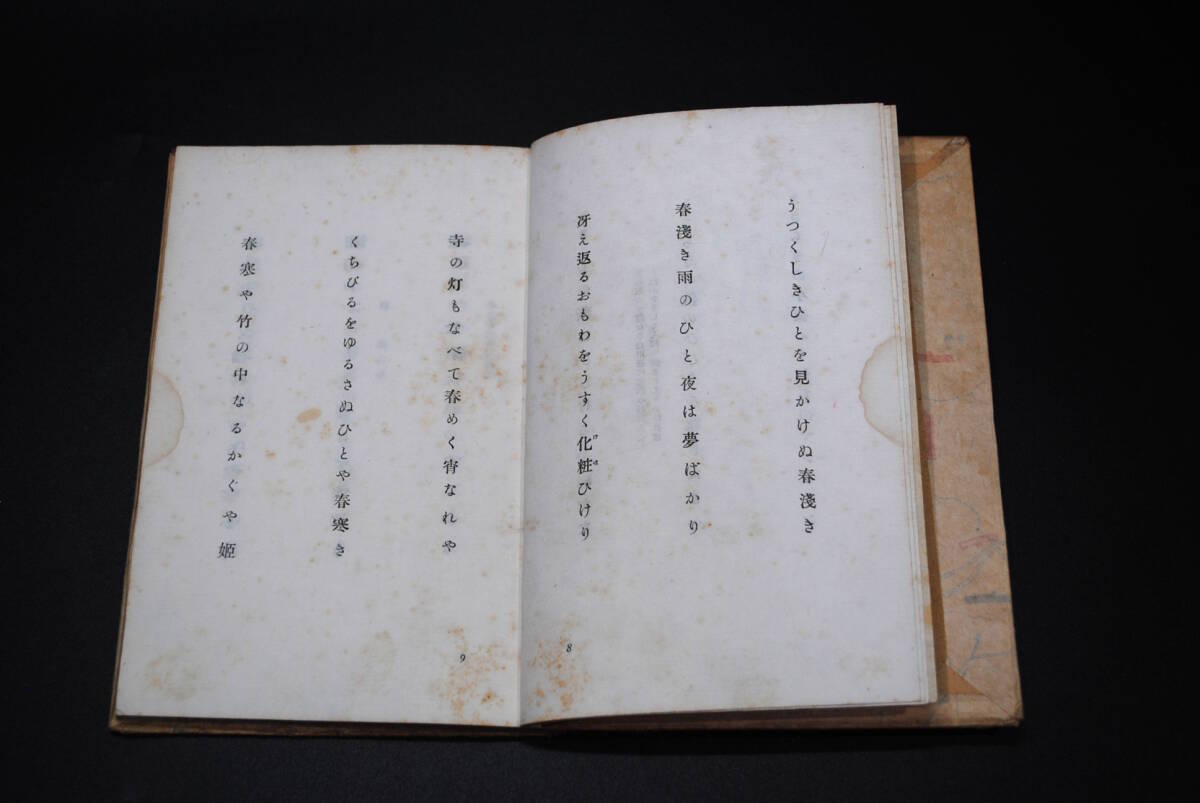 うつくしきひとを見かけぬ春淺き
春淺き雨のひと夜は夢ばかり
冴え返るおもわをうすく化粧ひけり
けは
8
寺の灯もなべて春めく宵なれや
くちびるをゆるさぬひとや春寒き
春寒や竹の中なるかぐや姫
9